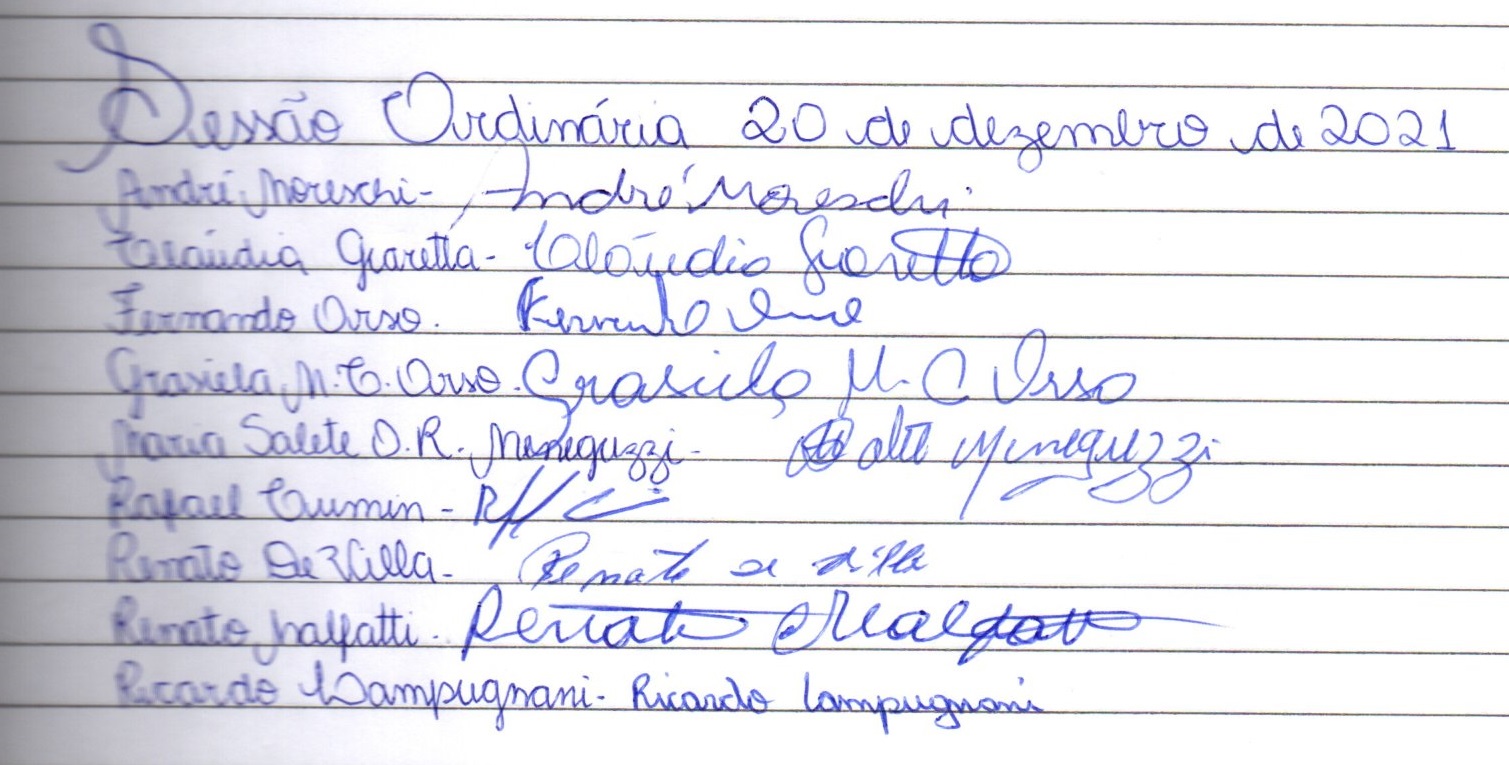 Sessão Ordinária 20 de dezembro de 2021
André Moreschi - André Moreschi.
Claúdia Giaretta - Claúdia Giaretta
Fernando Orso. Fernando Orso
Grasiela M. C. Orso. Grasiela M. C Orso
Maria Salete D. R. Meneguzzi - Salete Meneguzzi
Rafael -
Renato De Villa - Renato de Villa
Renato Malfatti. Renato Malfatti
Ricardo Lampugnani - Ricardo Lampugnani